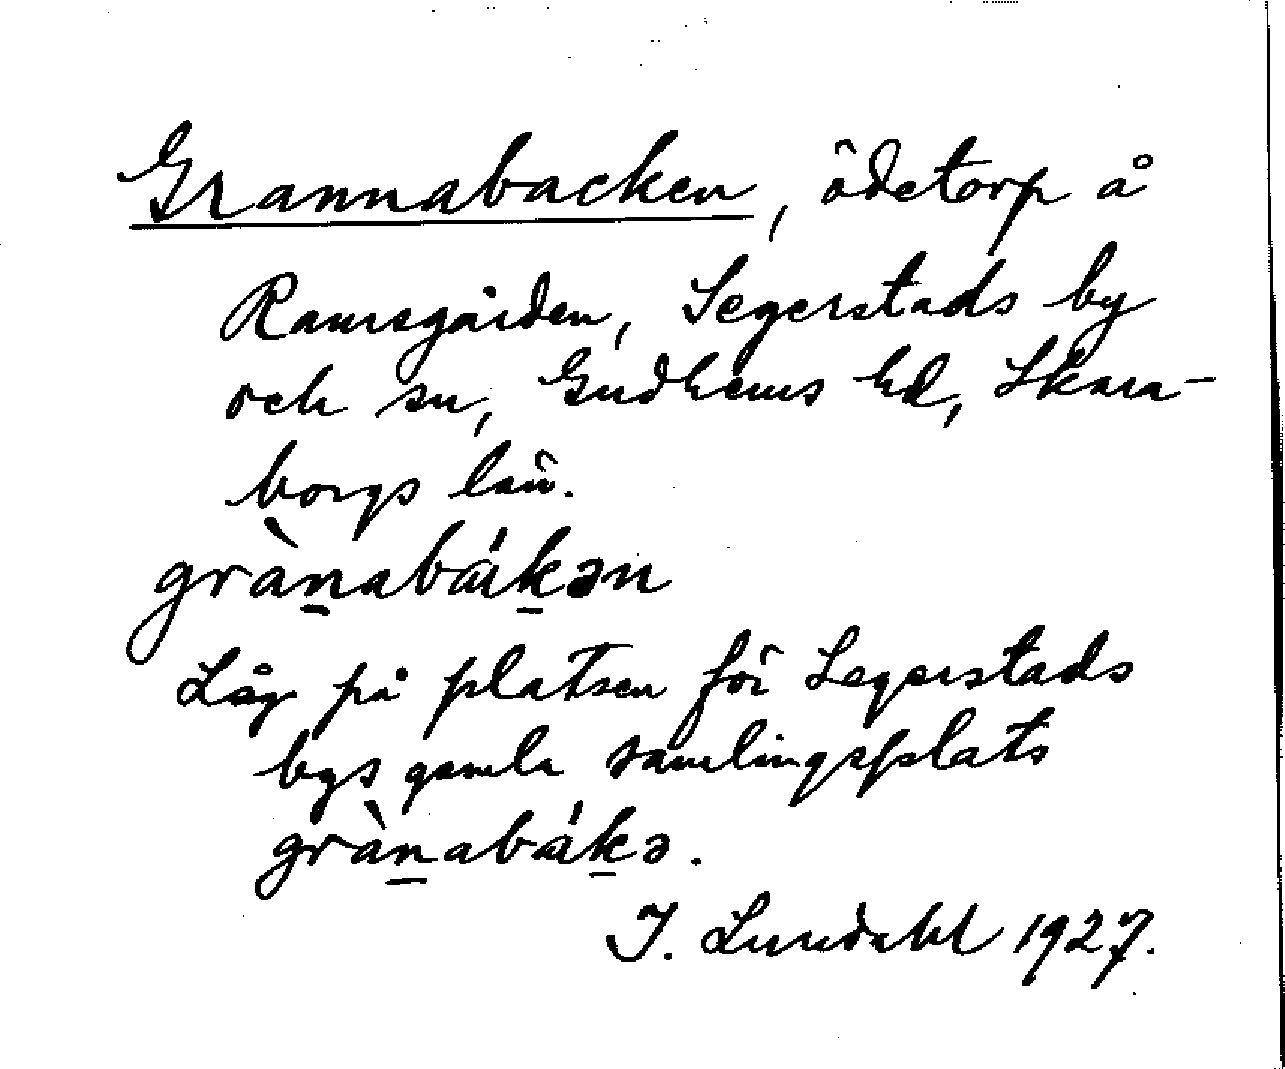 Grannabacken, ödetorp å
Ramsgården, Segerstads by
och sn, Gudhems hd, Skara-
borgs län.
gràn̲abák̲ən
Låg på platsen för Segerstads
bys gamla samlingsplats
gràn̲abák̲ə.
I. Lundahl 1927.